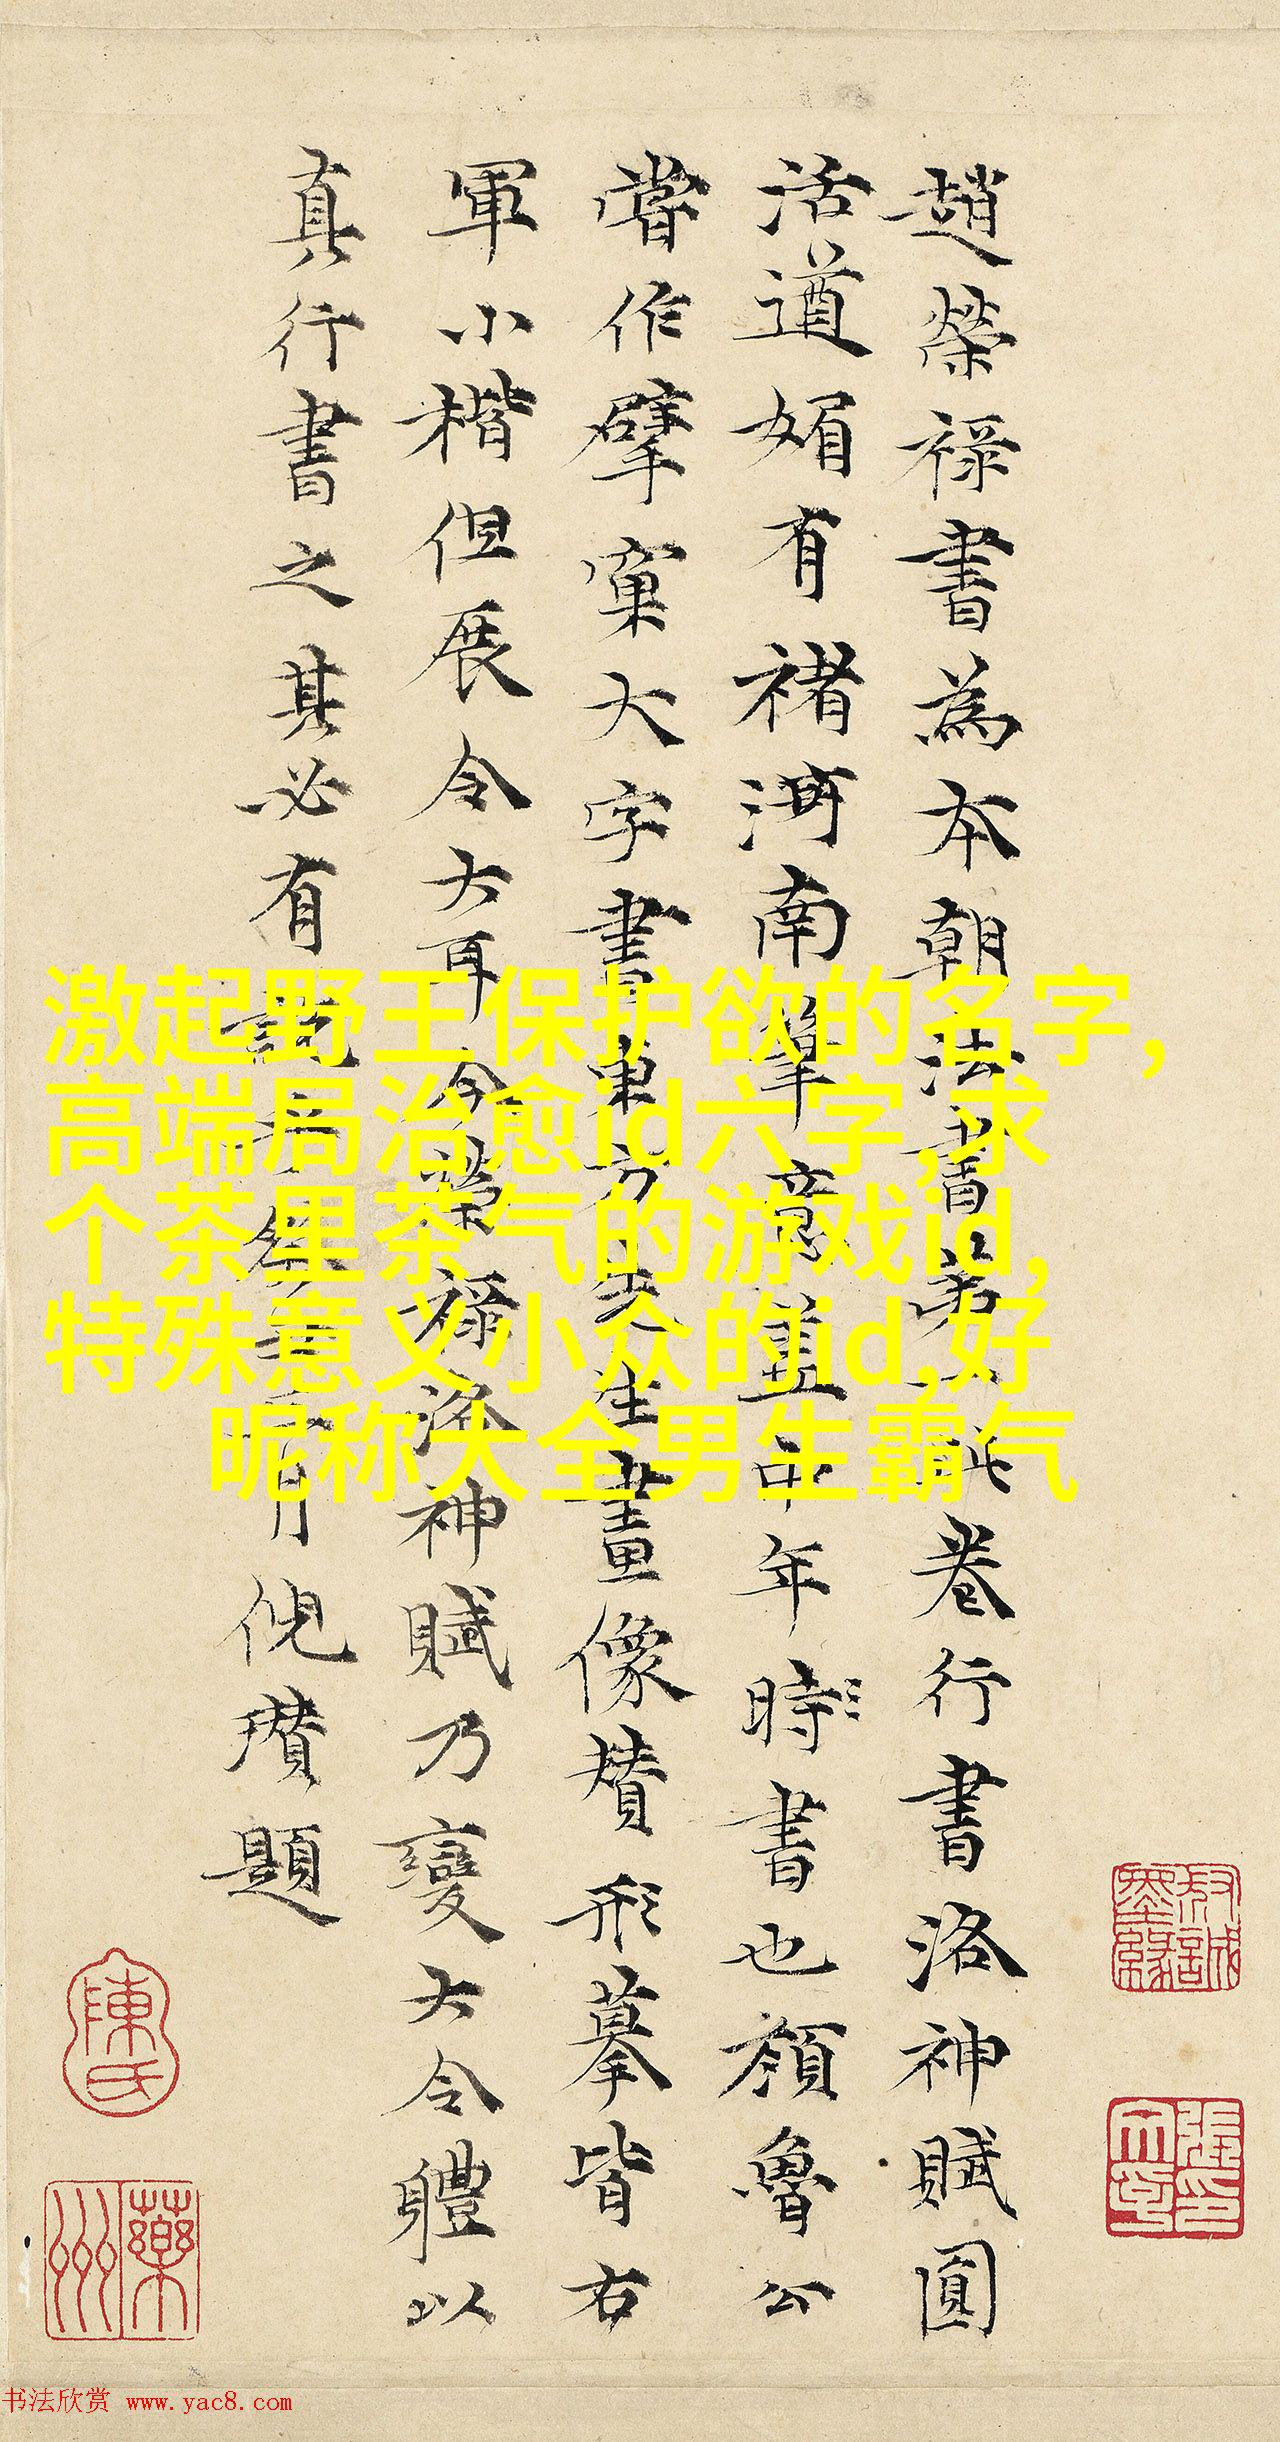 趙榮祿書為本朝法書第一此卷行書洛神賦圓
活遒媚有褚河南筆意蓋中年時書也顏魯公
嘗作擘窠大字書東方先生畫像贊形摹皆右
軍小楷但展令大耳今榮祿洛神賦乃變大令體以
真行書之其必有說
月倪瓚題
激起野王保护欲的名字,
高端局治愈id六字,求
个茶里茶气的游戏id,
特殊意义小众的id,好
昵称大全男生霸气
陳氏
藥洲
书法欣赏 www.yac8.com